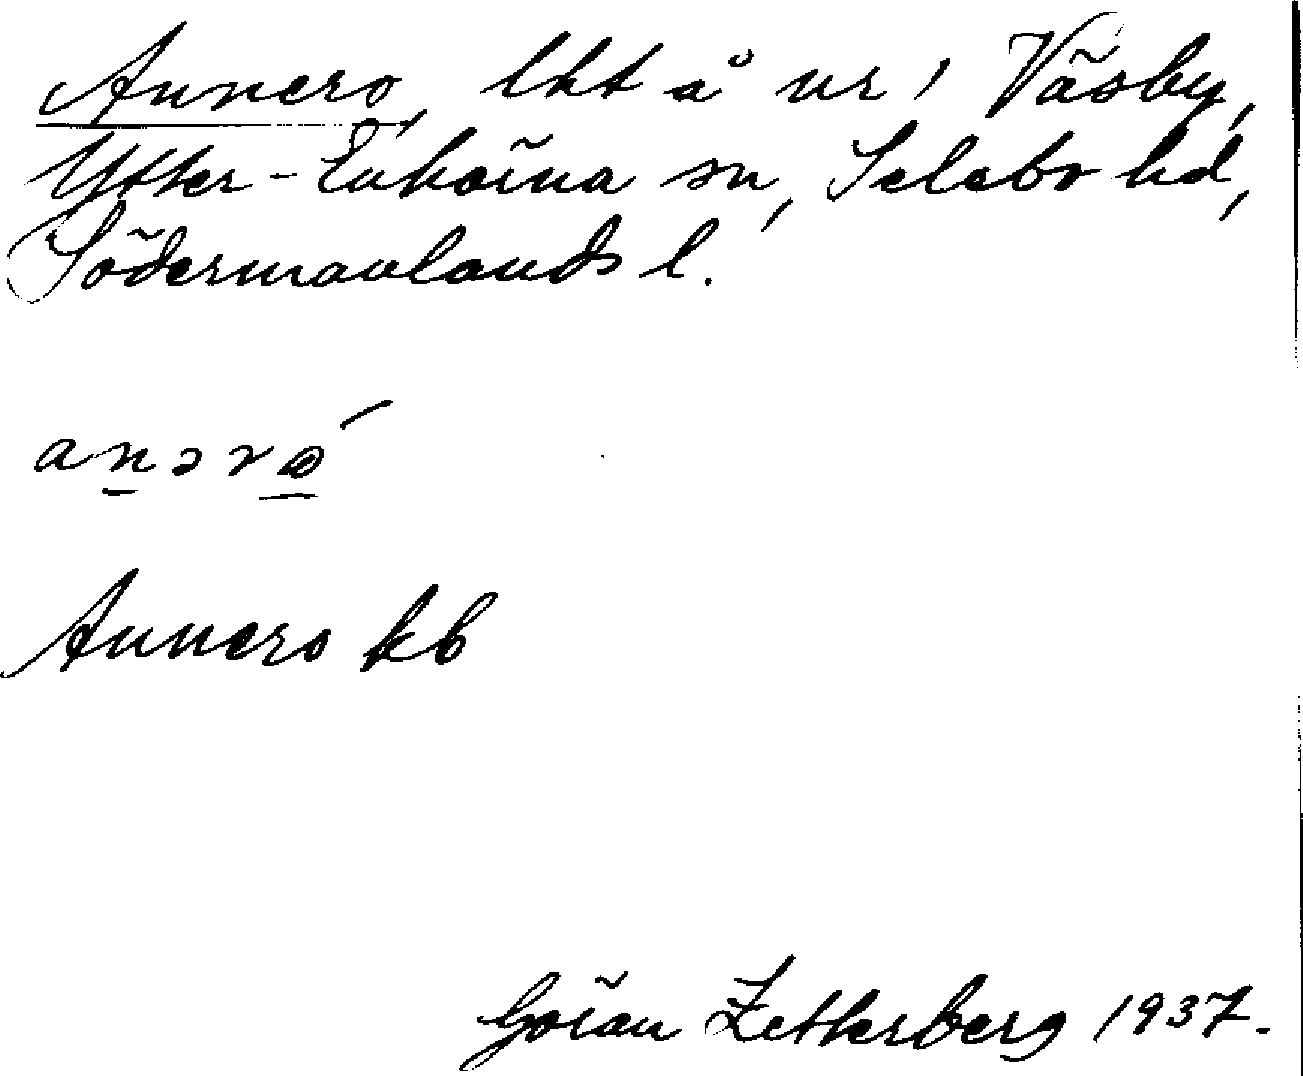 Annero, lht å nr 1 Väsby,
Ytter-Enhörna sn, Selebo hd,
Södermanlands l.
anərø´
Annero kb
Göran Zetterberg 1937.